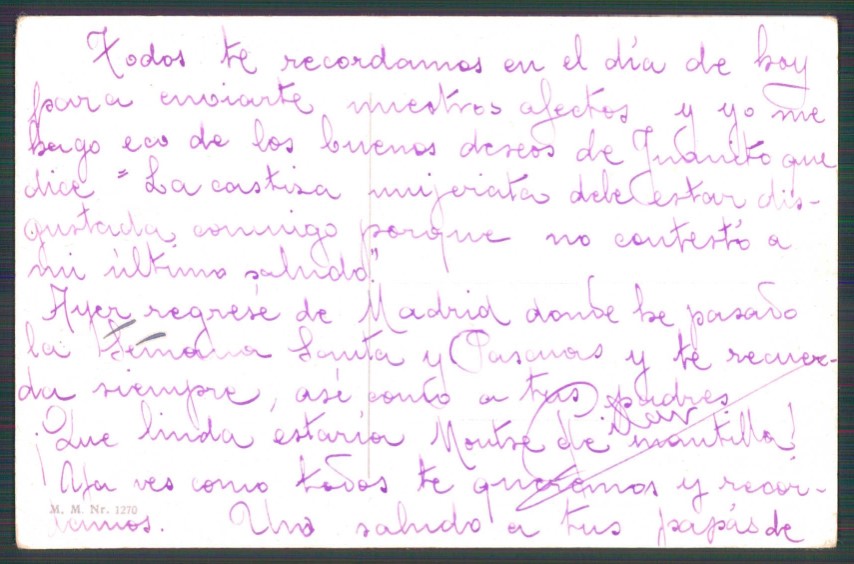 Todos te recordamos en el día de hoy
para enviarte nuestros afectos y yo me
hago eco de los buenos deseos de Juanito que
dice "La castiza mujerata debe estar dis-
gustada conmigo porque no contestó a
mi último saludo".
Ayer regresé de Madrid donde he pasado
la Semana Santa y Pascuas y te recuer-
da siempre, así como a tus padres
Pilar
¡Que linda estaría Montse de mantilla!
Ya ves como todos te queremos y recor-
damos. Un saludo a tus papás de
M. M. Nr. 1270